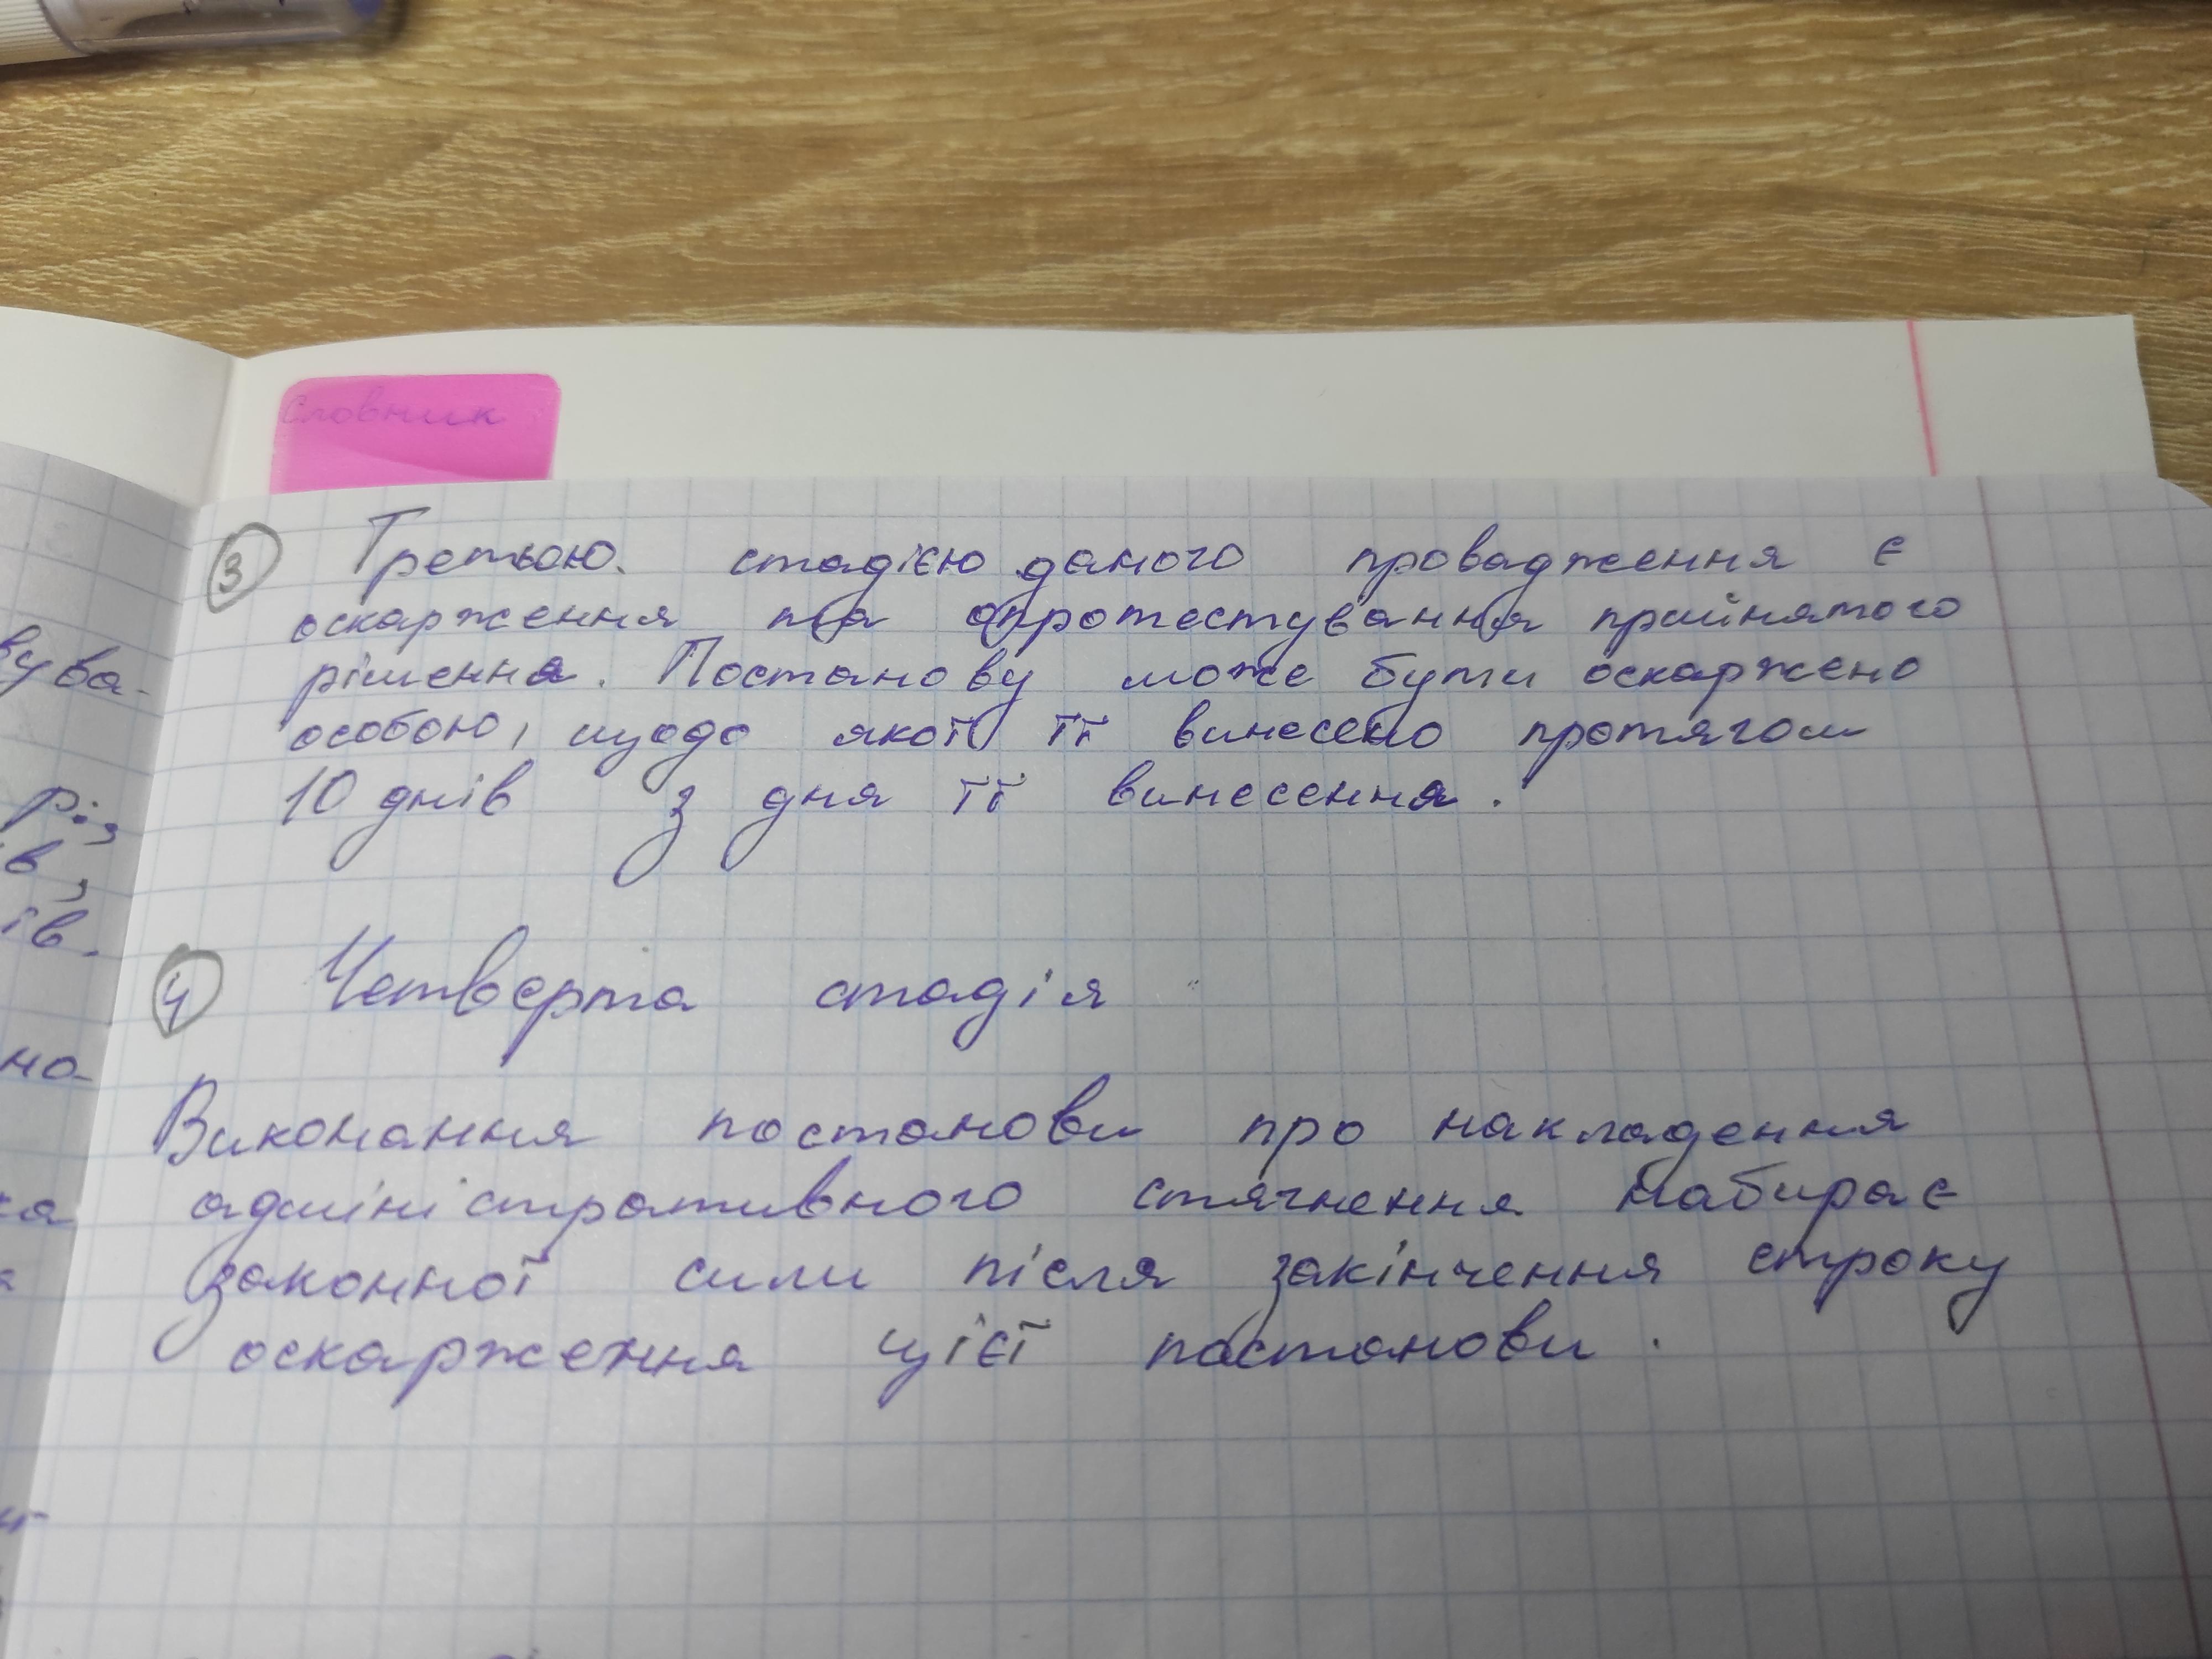 Словник
③ Третьою стадією даного провадження є
оскарження та опротестування прийнятого
рішення. Постанову може бути оскаржено
особою, щодо якої її винесено протягом
10 днів з дня її винесення.
④ Четверта стадія
Виконання постанови про накладення
адміністративного стягнення набирає
законної сили після закінчення строку
оскарження цієї постанови.